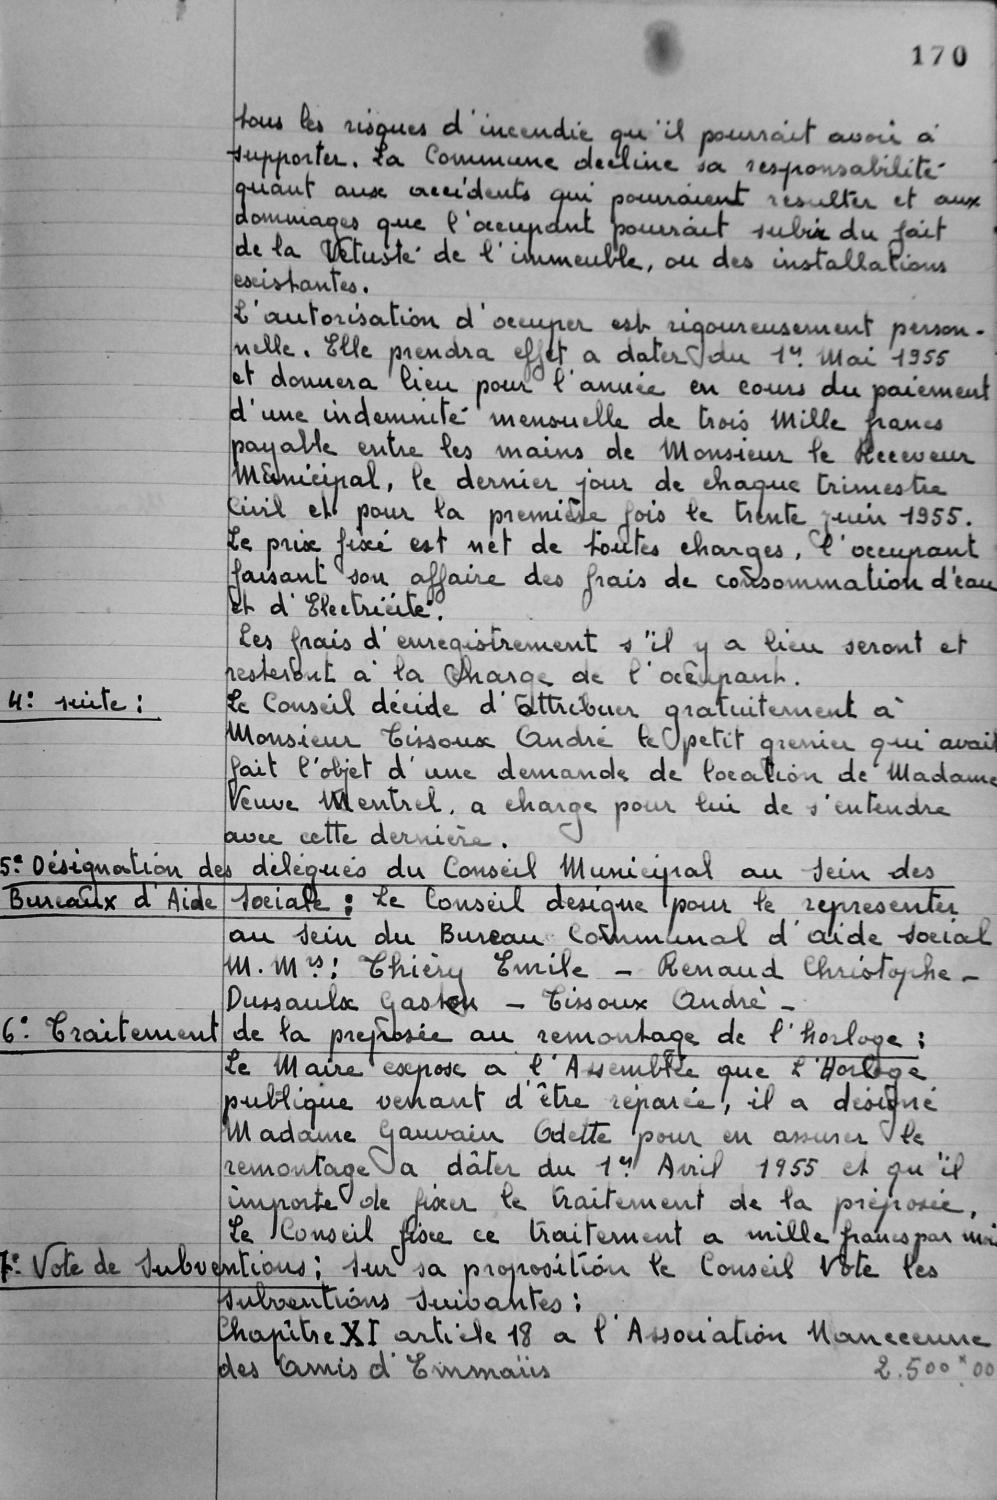 170
tous les risques d'incendie qu'il pourrait avoir à
supporter. La Commune décline sa responsabilité
quant aux accidents qui pourraient résulter et aux
dommages que l'occupant pourrait subir du fait
de la Vetusté de l'immeuble, ou des installations
existantes.
L'autorisation d'occuper est rigoureusement person-
nelle. Elle prendra effet a dater du 1er Mai 1955
et donnera lieu pour l'année en cours du paiement
d'une indemnité mensuelle de trois Mille francs
payable entre les mains de Monsieur le Receveur
Municipal, le dernier jour de chaque trimestre
Civil et pour la première fois le trente juin 1955.
Le prix fixé est net de toutes charges, l'occupant
faisant son affaire des frais de consommation d'eau
et d'Electricité.
Les frais d'enregistrement s'il y a lieu seront et
resteront à la charge de l'occupant.
4° suite : Le Conseil décide d'attribuer gratuitement à
Monsieur Tissoux André le petit grenier qui avait
fait l'objet d'une demande de location de Madame
Veuve Mentrel, a charge pour lui de s'entendre
avec cette dernière.
5° Désignation des délégués du Conseil Municipal au sein des
Bureaux d'Aide Sociale : Le Conseil désigne pour le representer
au sein du Bureau Communal d'aide social
M. Mrs : Thiéry Emile - Renaud Christophe -
Dussaulx Gaston - Tissoux André -
6° Traitement de la preposée au remontage de l'horloge :
Le Maire expose a l'Assemblée que L'Horloge
publique venant d'être réparée, il a désigné
Madame Gauvain Odette pour en assurer le
remontage a dâter du 1er Avril 1955 et qu'il
importe de fixer le traitement de la préposée,
Le Conseil fixe ce traitement a mille francs par moi
7° Vote de Subventions : Sur sa proposition le Conseil Vote les
subventions Suivantes :
Chapitre XI article 18 a l'Association Nanceenne
des Amis d'Emmaüs 2.500 x 00